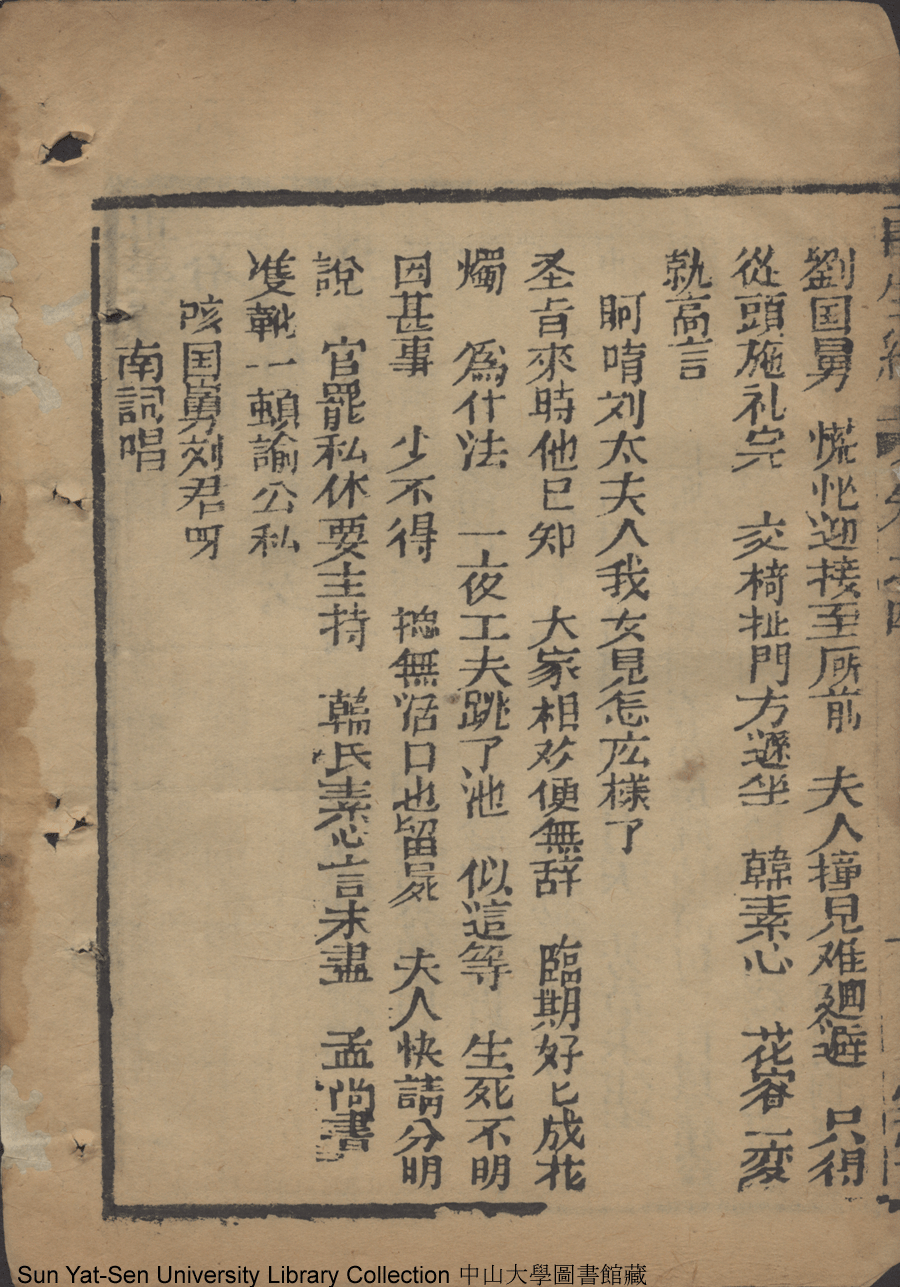 劉国舅 慌忙迎接至厛前 夫人撞見难廻避 只得
從頭施礼完 交椅扯開方遜坐 韓素心 花容一变
執高言
呵唷刘太夫人我女兒怎広様了
圣旨來時他已知 大家相欢便無辞 臨期好匕成花
燭 為什法 一夜工夫跳了池 似這等 生死不明
因甚事 少不得 揔無活口也留屍 夫人快請分明
說 官罷私休要主持 韓氏素心言未盡 孟尚書
隻靴一頓諭公私
咳国舅刘君㕥
南詞唱
Sun Yat-Sen University Library Collection 中山大學圖書館藏